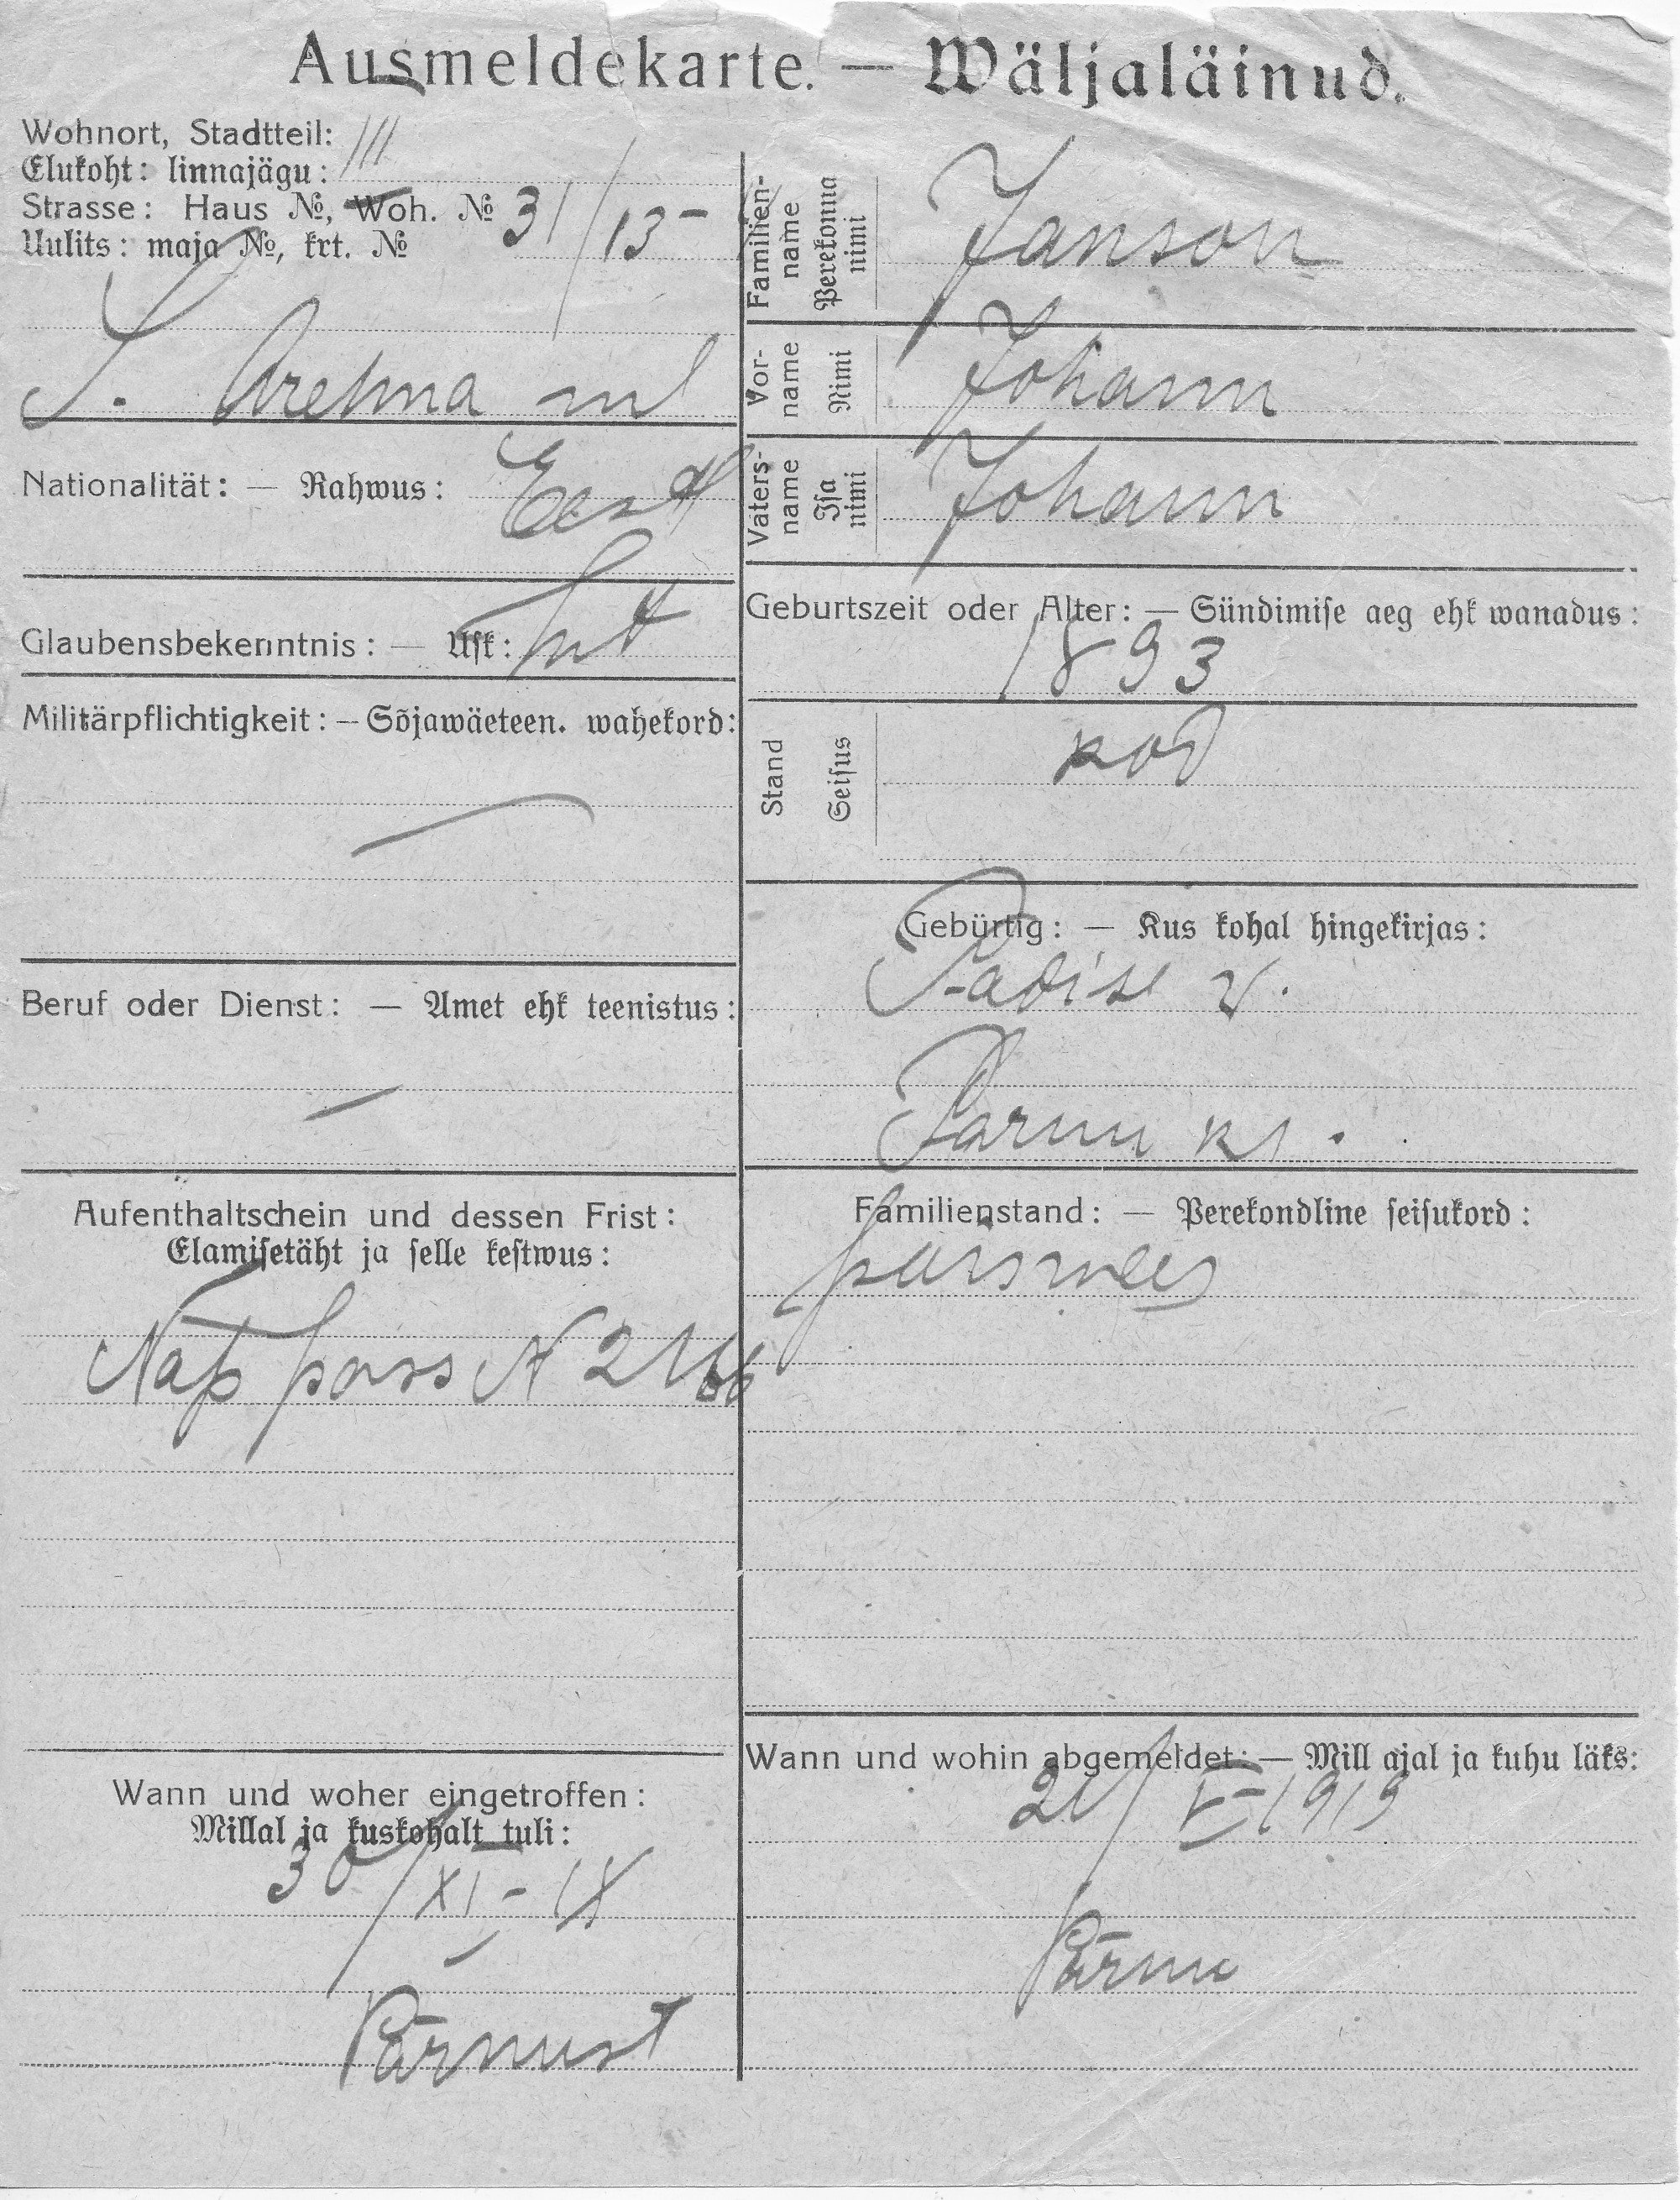 Ausmeldekarte. — Wäljaläinud.
Wohnort, Stadtteil:
Elukoht: linnajägu: III
Strasse: Haus №, Woh. № 31/13
Uulits: maja №, krt. №
Nationalität: — Rahwus: Eest
Glaubensbekenntnis: — Usk: lut
Militärpflichtigkeit: — Sõjawäeteen. wahekord:
—
Beruf oder Dienst: — Amet ehk teenistus:
—
Aufenthaltschein und dessen Frist:
Elamisetäht ja selle kestwus:
pass N 2166
Wann und woher eingetroffen:
Millal ja kuskohalt tuli:
30/XI - 18
Pärnust
Familien-
name
Perekonna
nimi
Janson
Vor-
name
Nimi
Johann
Vaters-
name
Isa
nimi
Johann
Geburtszeit oder Alter: — Sündimise aeg ehk wanadus:
1893
Stand
Seisus
Gebürtig: — Kus kohal hingekirjas:
Padise v.
Pärnu kr.
Familienstand: — Perekondline seisukord:
poismees
Wann und wohin abgemeldet: — Mill ajal ja kuhu läks:
21/V 1919
Pärnu